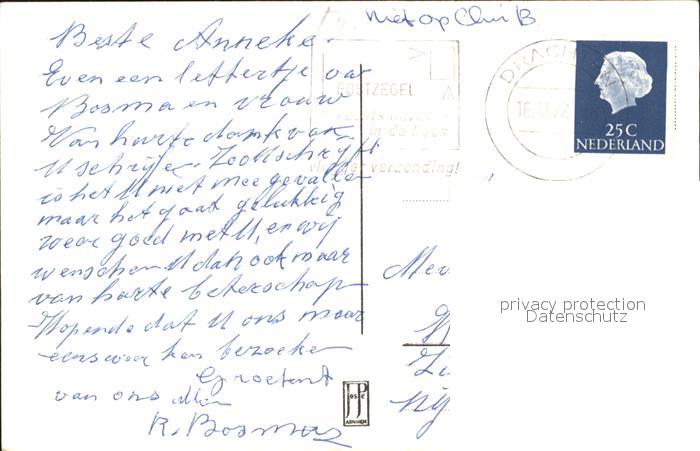 Niet op Chin B
Beste Anneke.
Even een lettertje van
Bosma en vrouw
Van harte dank voor
U schrijven. Zooals U schrijft
is het U niet mee gevallen
maar het gaat gelukkig
weer goed met U, en wij
wenschen U dan ook maar
van harte beterschap
Hopende dat U ons maar
eens weer kan bezoeken
Groetend
van ons allen
R. Bosma
POSTZEGEL
rechts boven
in de hoek
verzending!
DRACHTEN
25 C
NEDERLAND
Mev
Ny
JosPe
ARNHEM
privacy protection
Datenschutz